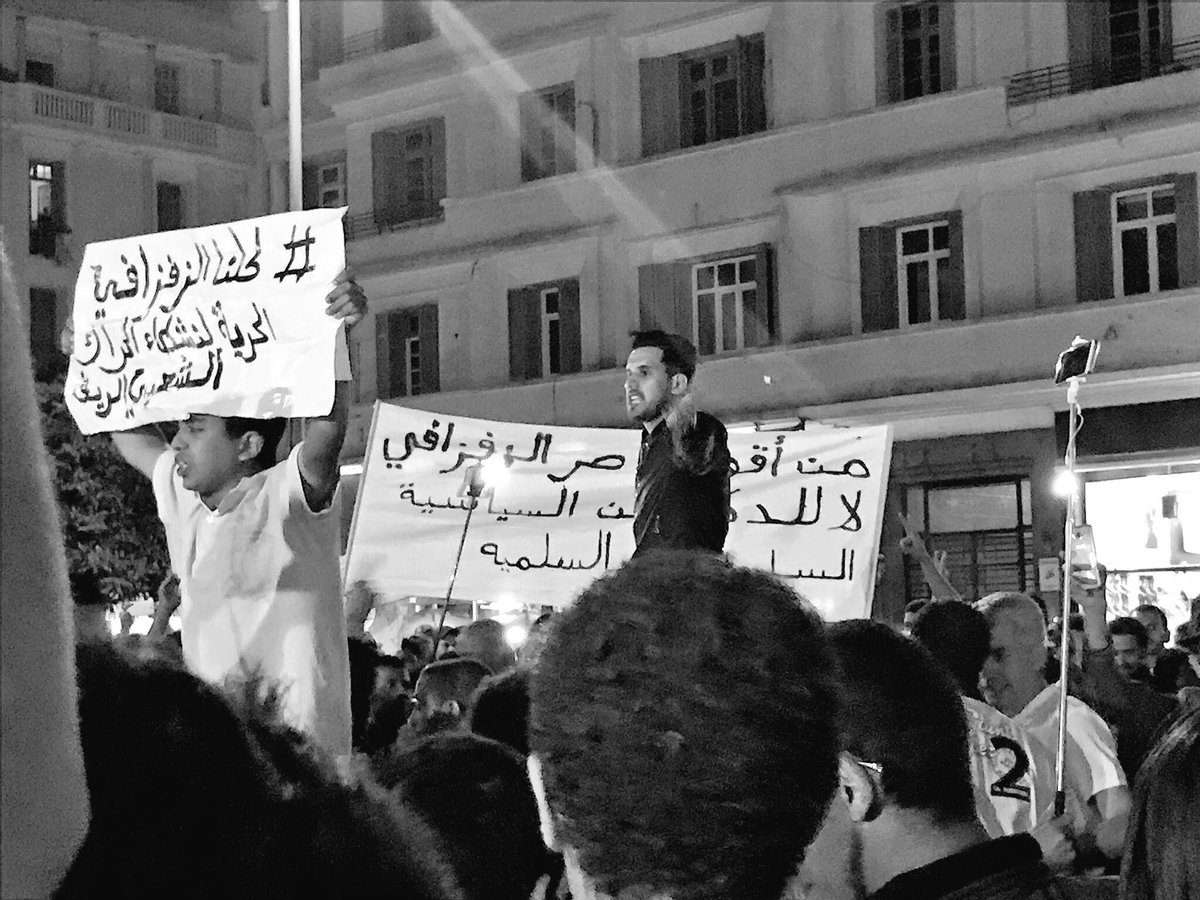 # كلنا الزفزافي
الحرية لنشطاء الحراك
الشعبي الريف
من الزفزافي
لا السياسية
السلميه
2